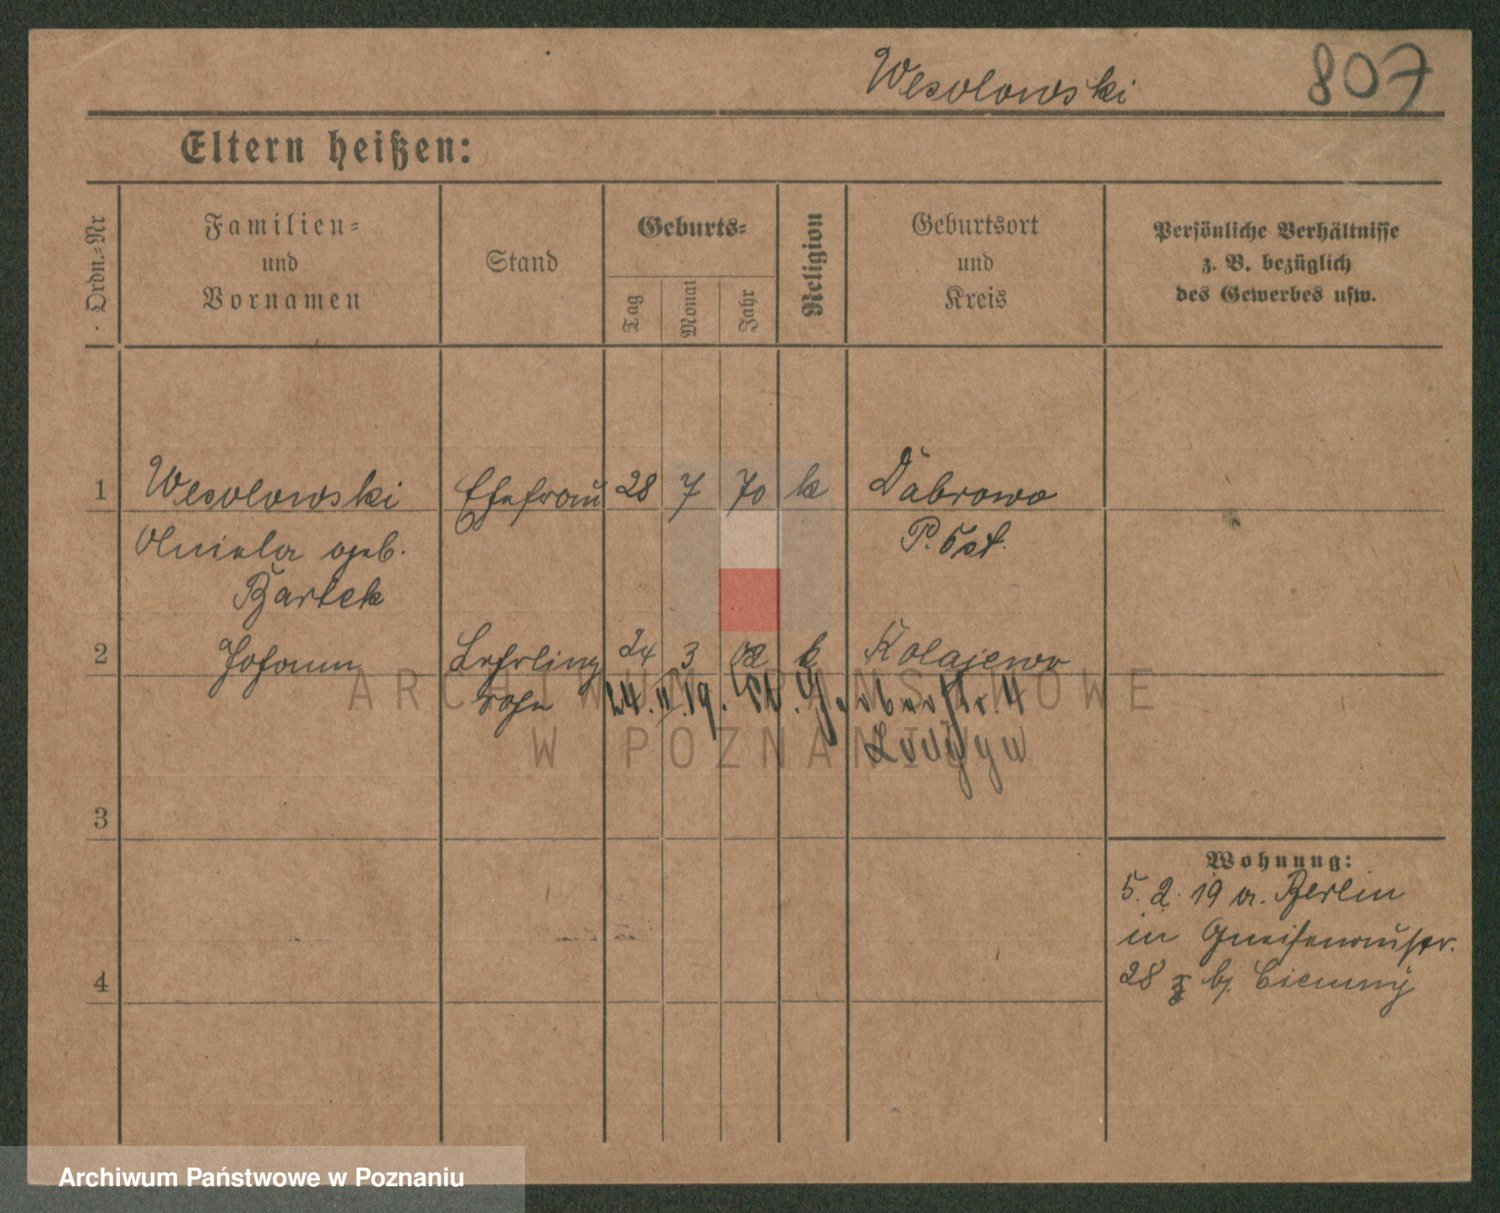 Wesolowski 807
Eltern heißen:
Ordn.-Nr
Familien-
und
Vornamen
Stand
Geburts-
Tag
Monat
Jahr
Religion
Geburtsort
und
Kreis
Persönliche Verhältnisse
z. B. bezüglich
des Gewerbes usw.
1 Wesolowski Ehefrau 28 7 70 k Dabrowo
Aniela geb. P. Ost.
Bartek
2 Johann Lehrling 24 3 02 k Kolajewo
24. 19. Gerberstr. 4
3
Wohnung:
5. 2. 19 a. Berlin
in Gneisenaustr.
4 28 b/ Ciemny
ARCHIWUM PAŃSTWOWE
W POZNANIU
Archiwum Państwowe w Poznaniu